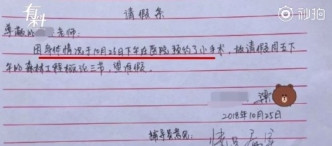 有料
秒拍
请假条
尊敬的 老师:
因身体情况于10月25日下午在医院预约了小手术，故请假周五下
午的森林工程概论三节，望准假。
2018年10月25日
辅导员意见: